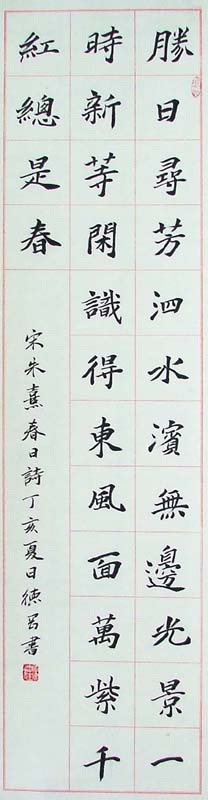 勝日尋芳泗水濱無邊光景一
時新等閑識得東風面萬紫千
紅總是春
宋朱熹春日詩丁亥夏日德書